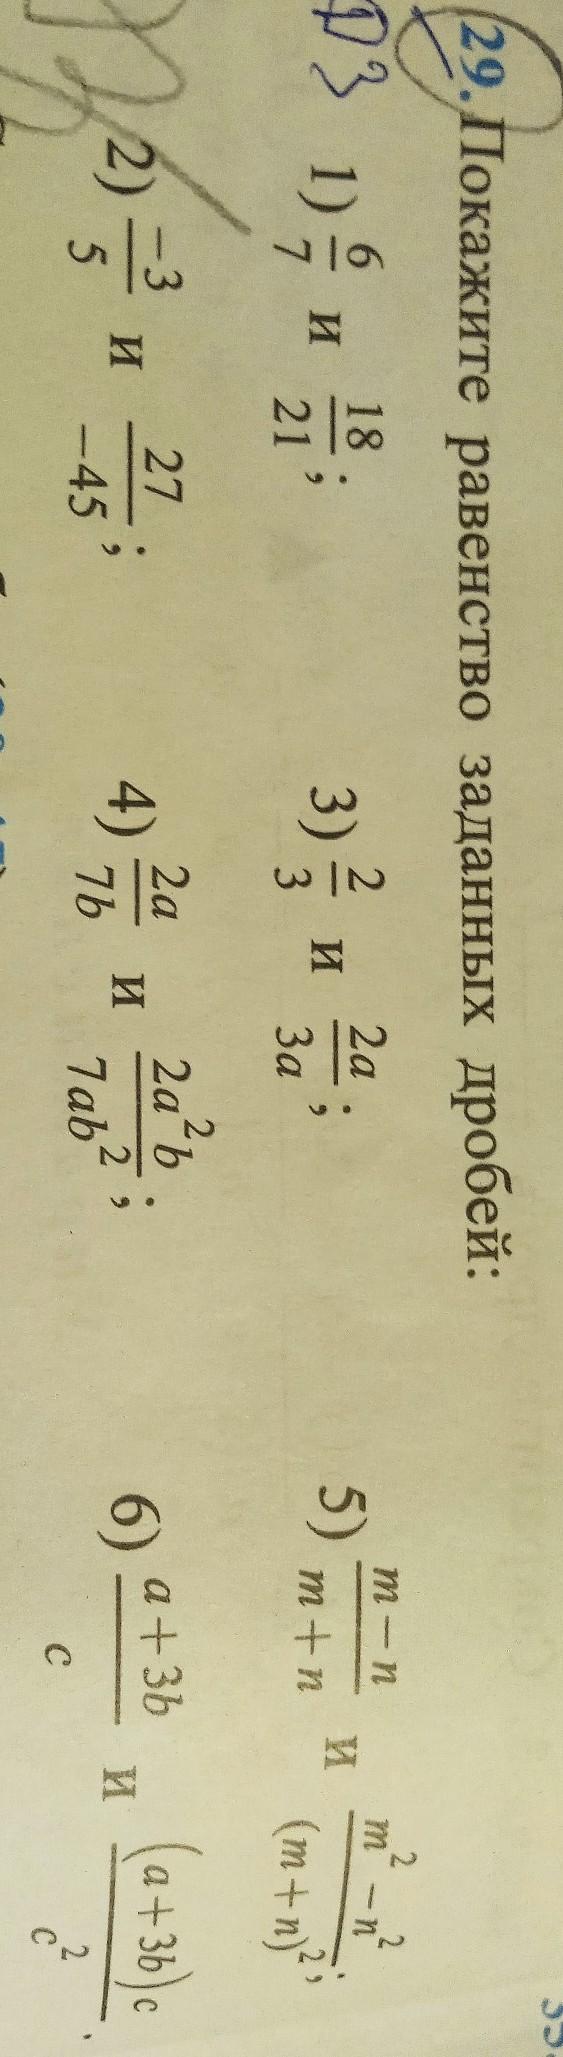 29. Покажите равенство заданных дробей:
ДЗ 1) 6/7 и 18/21; 3) 2/3 и 2a/3a; 5) (m−n)/(m+n) и (m²−n²)/(m+n)²;
2) −3/5 и 27/−45; 4) 2a/7b и 2a²b/7ab²; 6) (a+3b)/c и (a+3b)c/c².